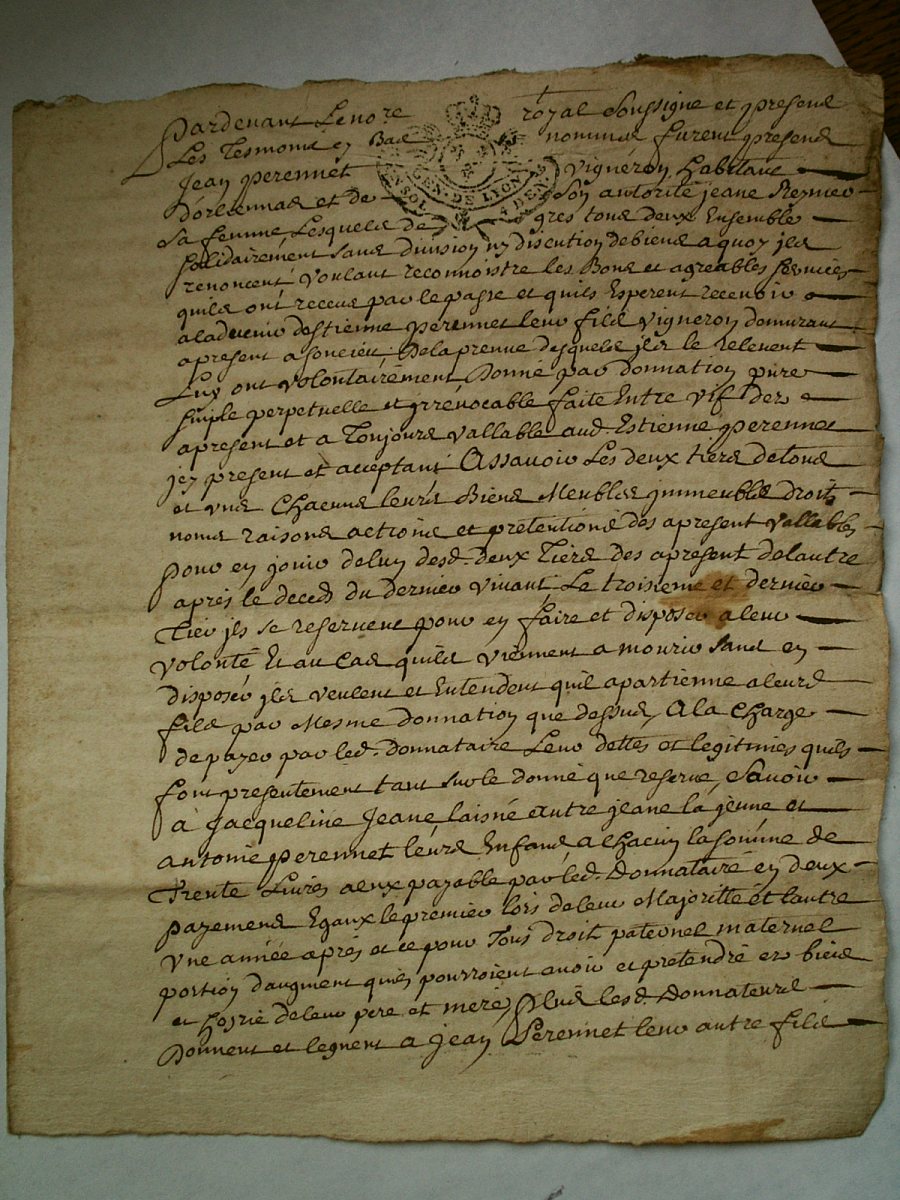 Pardevant Le no.re royal soussigne et presens
Les Tesmoins en Bas nommes furent presens
Jean perennet vigneron habitant
d'orliennas et de son autorité jeane Reynier
sa femme Lesquels de gres tous deux Ensemble
solidairement sans division ny discution de biens a quoy ils
renoncent, voulant reconnoistre les Bons et agreables services
quils ont receus par le passe et quils Esperent recevoir
a ladvenir d'Estienne perennet leur fils vigneron demurant
apresent a soucieu, De la preuve desquels ils le relevent
Lux ont volontairement Donné par donnation pure
simple perpetuelle et irrevocable faite Entre vif des
apresent et a Toujours vallable aud. Estienne perennet
jcy present et acceptant Assavoir Les deux tiers de tous
et uns Chacuns leurs Biens Meubles immeubles droits
noms raisons actions et pretentions des apresent vallables
pour en jouir de l'un desd. deux Tiers des apresent de lautre
aprés le deceds du dernier vivant. Le troisieme et dernier
Tier ils se reservent pour en faire et disposer a leur
volonté Et au Cas quils viennent a mourir sans en
disposer ils veulent et Entendent quil apartienne a leurs
fils par Mesme donnation que dessus, A la Charge
de payer par led. Donnataire Leur dettes et legitimes quils
font presentement tant sur le donné que reservé, Savoir
à Jacqueline Jeane laisné autre jeane la jeune et
antoine perennet leurs Enfans a chacun la somme de
Trente Livres a eux payable par led. Donnataire en deux
payemens Egaux le premier lors de leur Majorité et lautre
une année aprés et ce pour Tous droit paternel maternel
portion daugment quils pourroient avoir et pretendre es biens
et hoyrie de leur pere et mere, Plus lesd. Donnateurs
Donnent et leguent a Jean Perennet leur autre fils
GEN. DE LYON